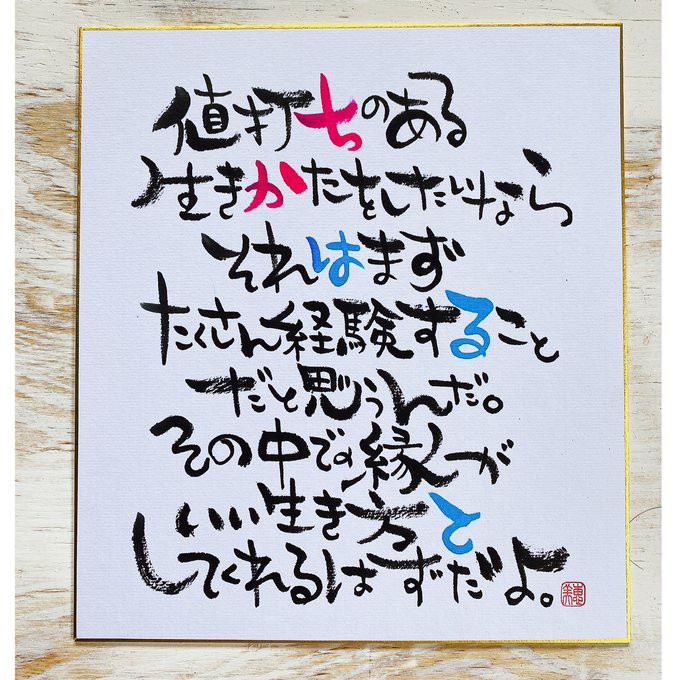 値打ちのある
生きかたをしたいなら
それはまず
たくさん経験すること
だと思うんだ。
その中での縁が
いい生き方と
してくれるはずだよ。